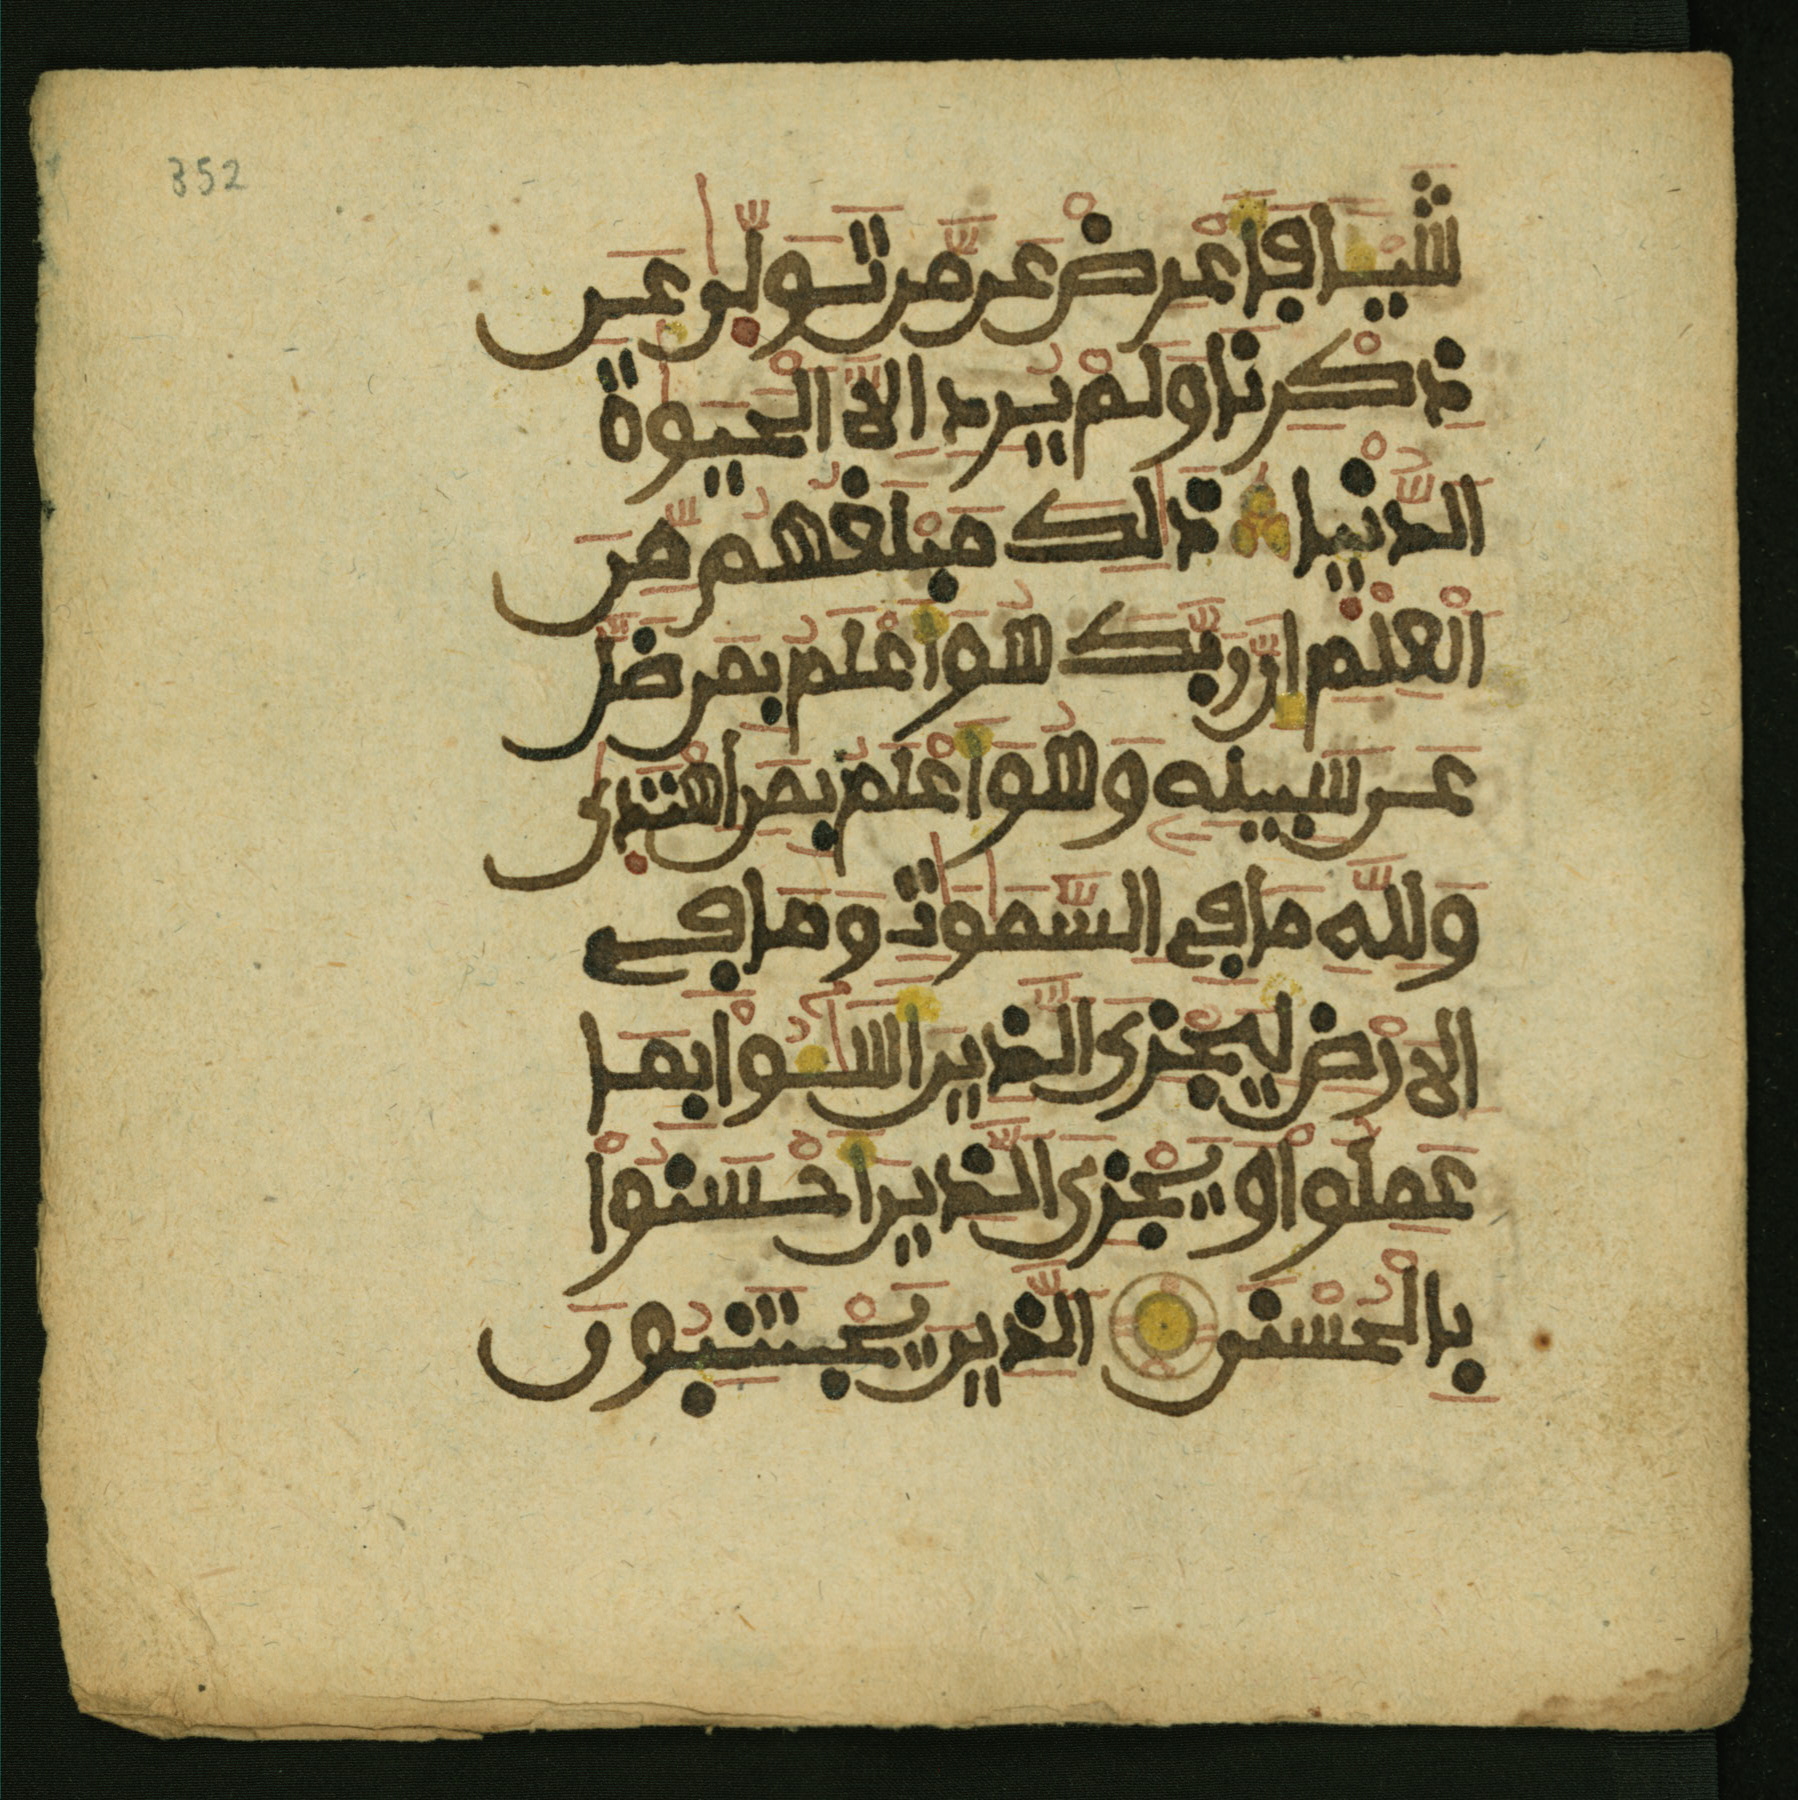 352
شَيْـًٔا فَأَعْرِضْ عَن مَّن تَوَلّٰى عَن
ذِكْرِنَا وَلَمْ يُرِدِ اِلَّا الْحَيَوٰةَ
الدُّنْيَا ذَٰلِكَ مَبْلَغُهُم مِّنَ
الْعِلْمِ اِنَّ رَبَّكَ هُوَ أَعْلَمُ بِمَن ضَلَّ
عَن سَبِيلِهِۦ وَهُوَ أَعْلَمُ بِمَنِ اهْتَدٰى
وَلِلَّهِ مَا فِے السَّمَٰوَٰتِ وَمَا فِے
الَارْضِ لِيَجْزِىَ الَّذِينَ أَسَٰٓـُٔوا بِمَا
عَمِلُواْ وَيَجْزِىَ الَّذِينَ أَحْسَنُواْ
بِالْحُسْنَى الَّذِينَ يَجْتَنِبُونَ